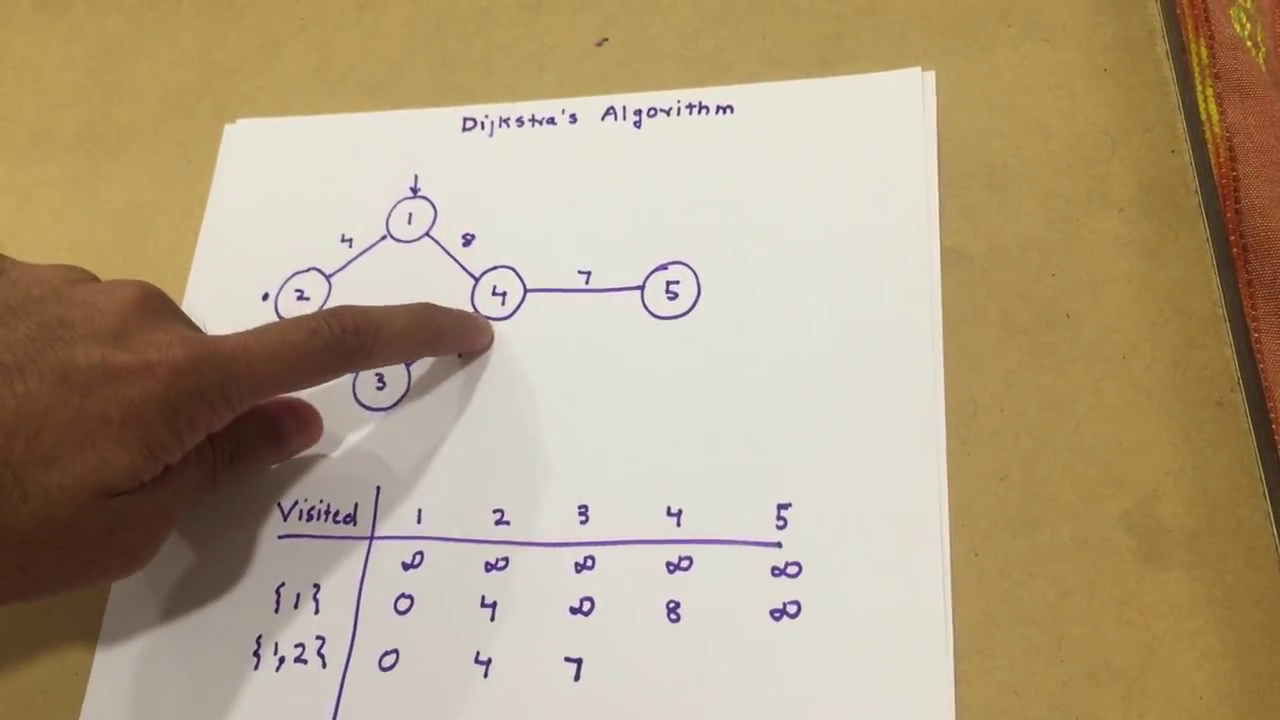 Dijkstra's Algorithm
1
4 8
2 4 7 5
3
Visited 1 2 3 4 5
∞ ∞ ∞ ∞ ∞
{1} 0 4 ∞ 8 ∞
{1,2} 0 4 7